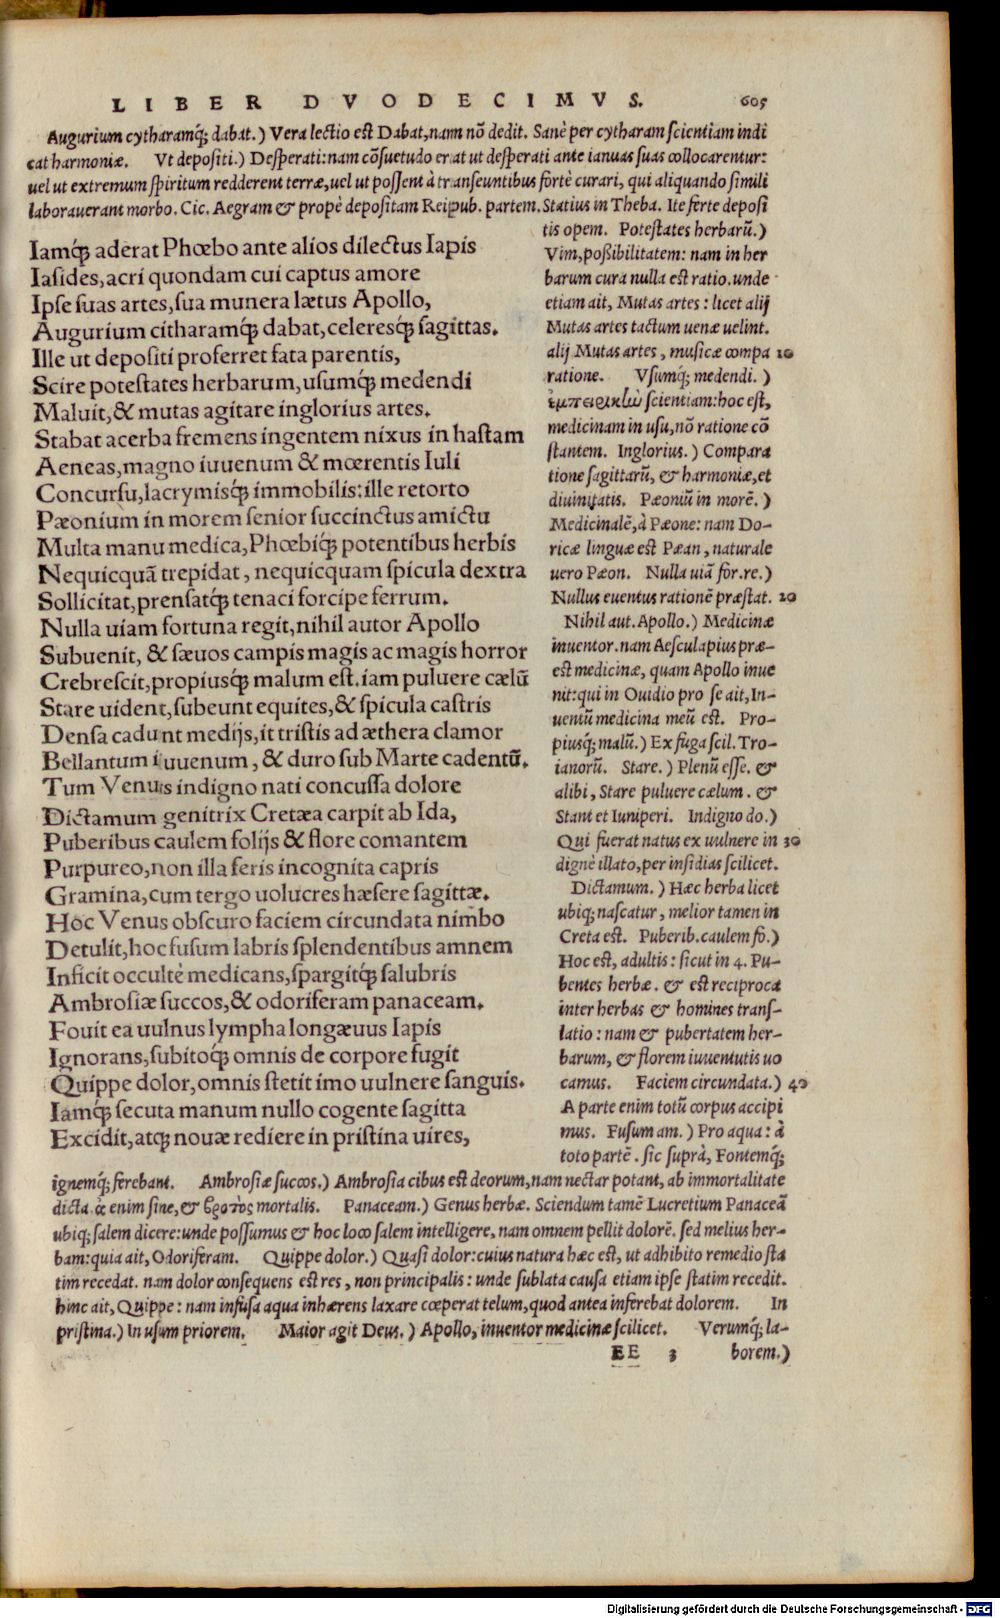 LIBER DVODECIMVS. 605
Augurium cytharamq́; dabat.) Vera lectio est Dabat,nam nō dedit. Sanè per cytharam scientiam indi
cat harmoniæ. Vt depositi.) Desperati:nam cōsuetudo erat ut desperati ante ianuas suas collocarentur:
uel ut extremum spiritum redderent terræ,uel ut possent à transeuntibus fortè curari, qui aliquando simili
laborauerant morbo. Cic. Aegram & propè depositam Reipub. partem. Statius in Theba. Ite ferte deposi
Iamq́; aderat Phœbo ante alios dilectus Iapis
Iasides,acri quondam cui captus amore
Ipse suas artes,sua munera lætus Apollo,
Augurium citharamq́; dabat,celeresq́; sagittas.
Ille ut depositi proferret fata parentis,
Scire potestates herbarum,usumq́; medendi
Maluit,& mutas agitare inglorius artes.
Stabat acerba fremens ingentem nixus in hastam
Aeneas,magno iuuenum & mœrentis Iuli
Concursu,lacrymisq́; immobilis:ille retorto
Pæonium in morem senior succinctus amictu
Multa manu medica,Phœbiq́; potentibus herbis
Nequicquā trepidat, nequicquam spicula dextra
Sollicitat,prensatq́; tenaci forcipe ferrum.
Nulla uiam fortuna regit,nihil autor Apollo
Subuenit, & sæuos campis magis ac magis horror
Crebrescit,propiusq́; malum est.iam puluere cælū
Stare uident,subeunt equites,& spicula castris
Densa cadunt medijs,it tristis ad æthera clamor
Bellantum iuuenum, & duro sub Marte cadentū.
Tum Venus indigno nati concussa dolore
Dictamum genitrix Cretæa carpit ab Ida,
Puberibus caulem folijs & flore comantem
Purpureo,non illa feris incognita capris
Gramina,cum tergo uolucres hæsere sagittæ.
Hoc Venus obscuro faciem circundata nimbo
Detulit,hoc fusum labris splendentibus amnem
Inficit occultè medicans,spargitq́; salubris
Ambrosiæ succos,& odoriferam panaceam.
Fouit ea uulnus lympha longæuus Iapis
Ignorans,subitoq́; omnis de corpore fugit
Quippe dolor,omnis stetit imo uulnere sanguis.
Iamq́; secuta manum nullo cogente sagitta
Excidit,atq; nouæ rediere in pristina uires,
tis opem. Potestates herbarū.)
Vim,possibilitatem: nam in her
barum cura nulla est ratio.unde
etiam ait, Mutas artes: licet alij
Mutas artes tactum uenæ uelint.
alij Mutas artes, musicæ compa 10
ratione. Vsumq́; medendi.)
ἐμπειρικὼ scientiam:hoc est,
medicinam in usu,nō ratione cō
stantem. Inglorius.) Compara
tione sagittarū, & harmoniæ,et
diuinitatis. Pæoniū in morē.)
Medicinalē,à Pæone: nam Do-
ricæ linguæ est Pæan, naturale
uero Pæon. Nulla uiā for.re.)
Nullus euentus rationē præstat. 20
Nihil aut. Apollo.) Medicinæ
inuentor.nam Aesculapius præ-
est medicinæ, quam Apollo inue
nit:qui in Ouidio pro se ait,In-
uentū medicina meū est. Pro-
piusq́; malū.) Ex fuga scil. Tro-
ianorū. Stare.) Plenū esse. &
alibi, Stare puluere cælum. &
Stant et Iuniperi. Indigno do.)
Qui fuerat natus ex uulnere in 30
dignè illato,per insidias scilicet.
Dictamum.) Hæc herba licet
ubiq; nascatur, melior tamen in
Creta est. Puberib.caulem fo.)
Hoc est, adultis: sicut in 4. Pu-
bentes herbæ. & est reciproca
inter herbas & homines trans-
latio: nam & pubertatem her-
barum, & florem iuuentutis uo
camus. Faciem circundata.) 40
A parte enim totū corpus accipi
mus. Fusum am.) Pro aqua: à
toto partē. sic suprà, Fontemq́;
ignemq́; ferebant. Ambrosiæ succos.) Ambrosia cibus est deorum,nam nectar potant, ab immortalitate
dicta. ἀ enim sine,& βροτὸς mortalis. Panaceam.) Genus herbæ. Sciendum tamē Lucretium Panaceā
ubiq; salem dicere:unde possumus & hoc loco salem intelligere, nam omnem pellit dolorē. sed melius her-
bam:quia ait,Odoriferam. Quippe dolor.) Quasi dolor:cuius natura hæc est, ut adhibito remedio sta
tim recedat. nam dolor consequens est res, non principalis: unde sublata causa etiam ipse statim recedit.
hinc ait, Quippe: nam infusa aqua inhærens laxare cœperat telum,quod antea inferebat dolorem. In
pristina.) In usum priorem. Maior agit Deus.) Apollo, inuentor medicinæ scilicet. Verumq́; la-
EE 3 borem.)
Digitalisierung gefördert durch die Deutsche Forschungsgemeinschaft - DFG